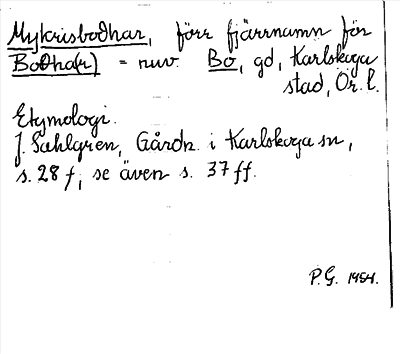 Mykrisbodhar, förr fjärrnamn för
Bodha(r) = nuv. Bo, gd, Karlskoga
stad, Ör. l.
Etymologi.
J. Sahlgren, Gårdn. i Karlskoga sn,
s. 28 f, se även s. 37 ff.
P.G. 1954.